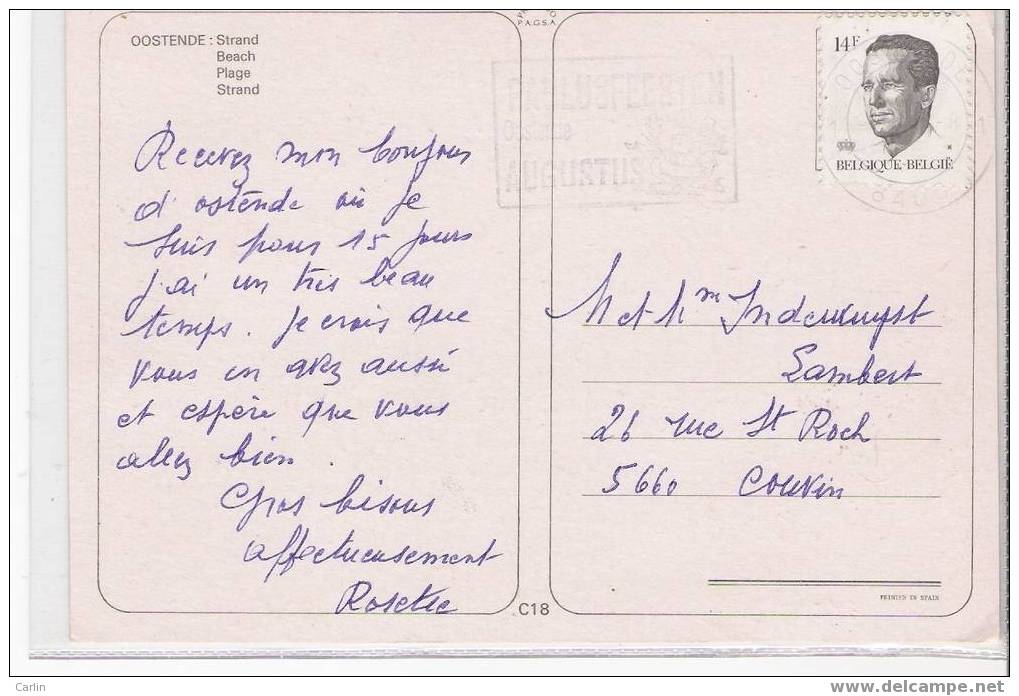 OOSTENDE : Strand
Beach
Plage
Strand
Recevez mon bonjour
d'ostende où je
suis pour 15 jours
j'ai un très beau
temps. Je crois que
vous en avez aussi
et espère que vous
allez bien.
Gros bisous
affectueusement
Rosette
C18
P.A.G.S.A
PAULUSFEESTEN
Oostende
AUGUSTUS
14F
BELGIQUE-BELGIË
M et Mme
Lambert
26 rue St Roch
5660 Couvin
PRINTED IN SPAIN
Carlin
www.delcampe.net